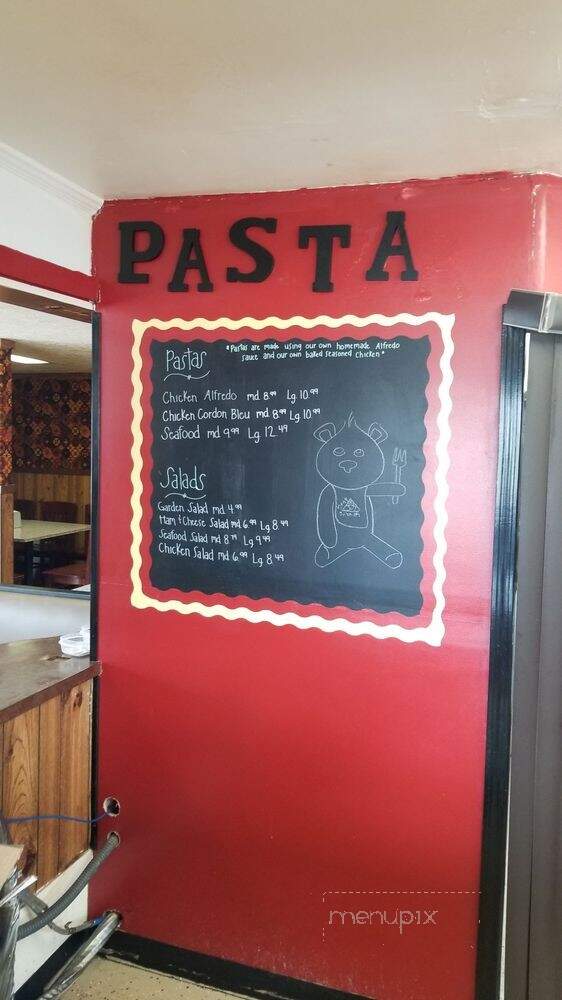 PASTA
Pastas
*Pastas are made using our own homemade Alfredo
sauce and our own baked seasoned chicken*
Chicken Alfredo md 8.99 Lg 10.99
Chicken Cordon Bleu md 8.99 Lg 10.99
Seafood md 9.99 Lg 12.49
Salads
Garden Salad md 4.99
Ham & Cheese Salad md 6.99 Lg 8.49
Seafood Salad md 8.79 Lg 9.99
Chicken Salad md 6.99 Lg 8.49
menupix